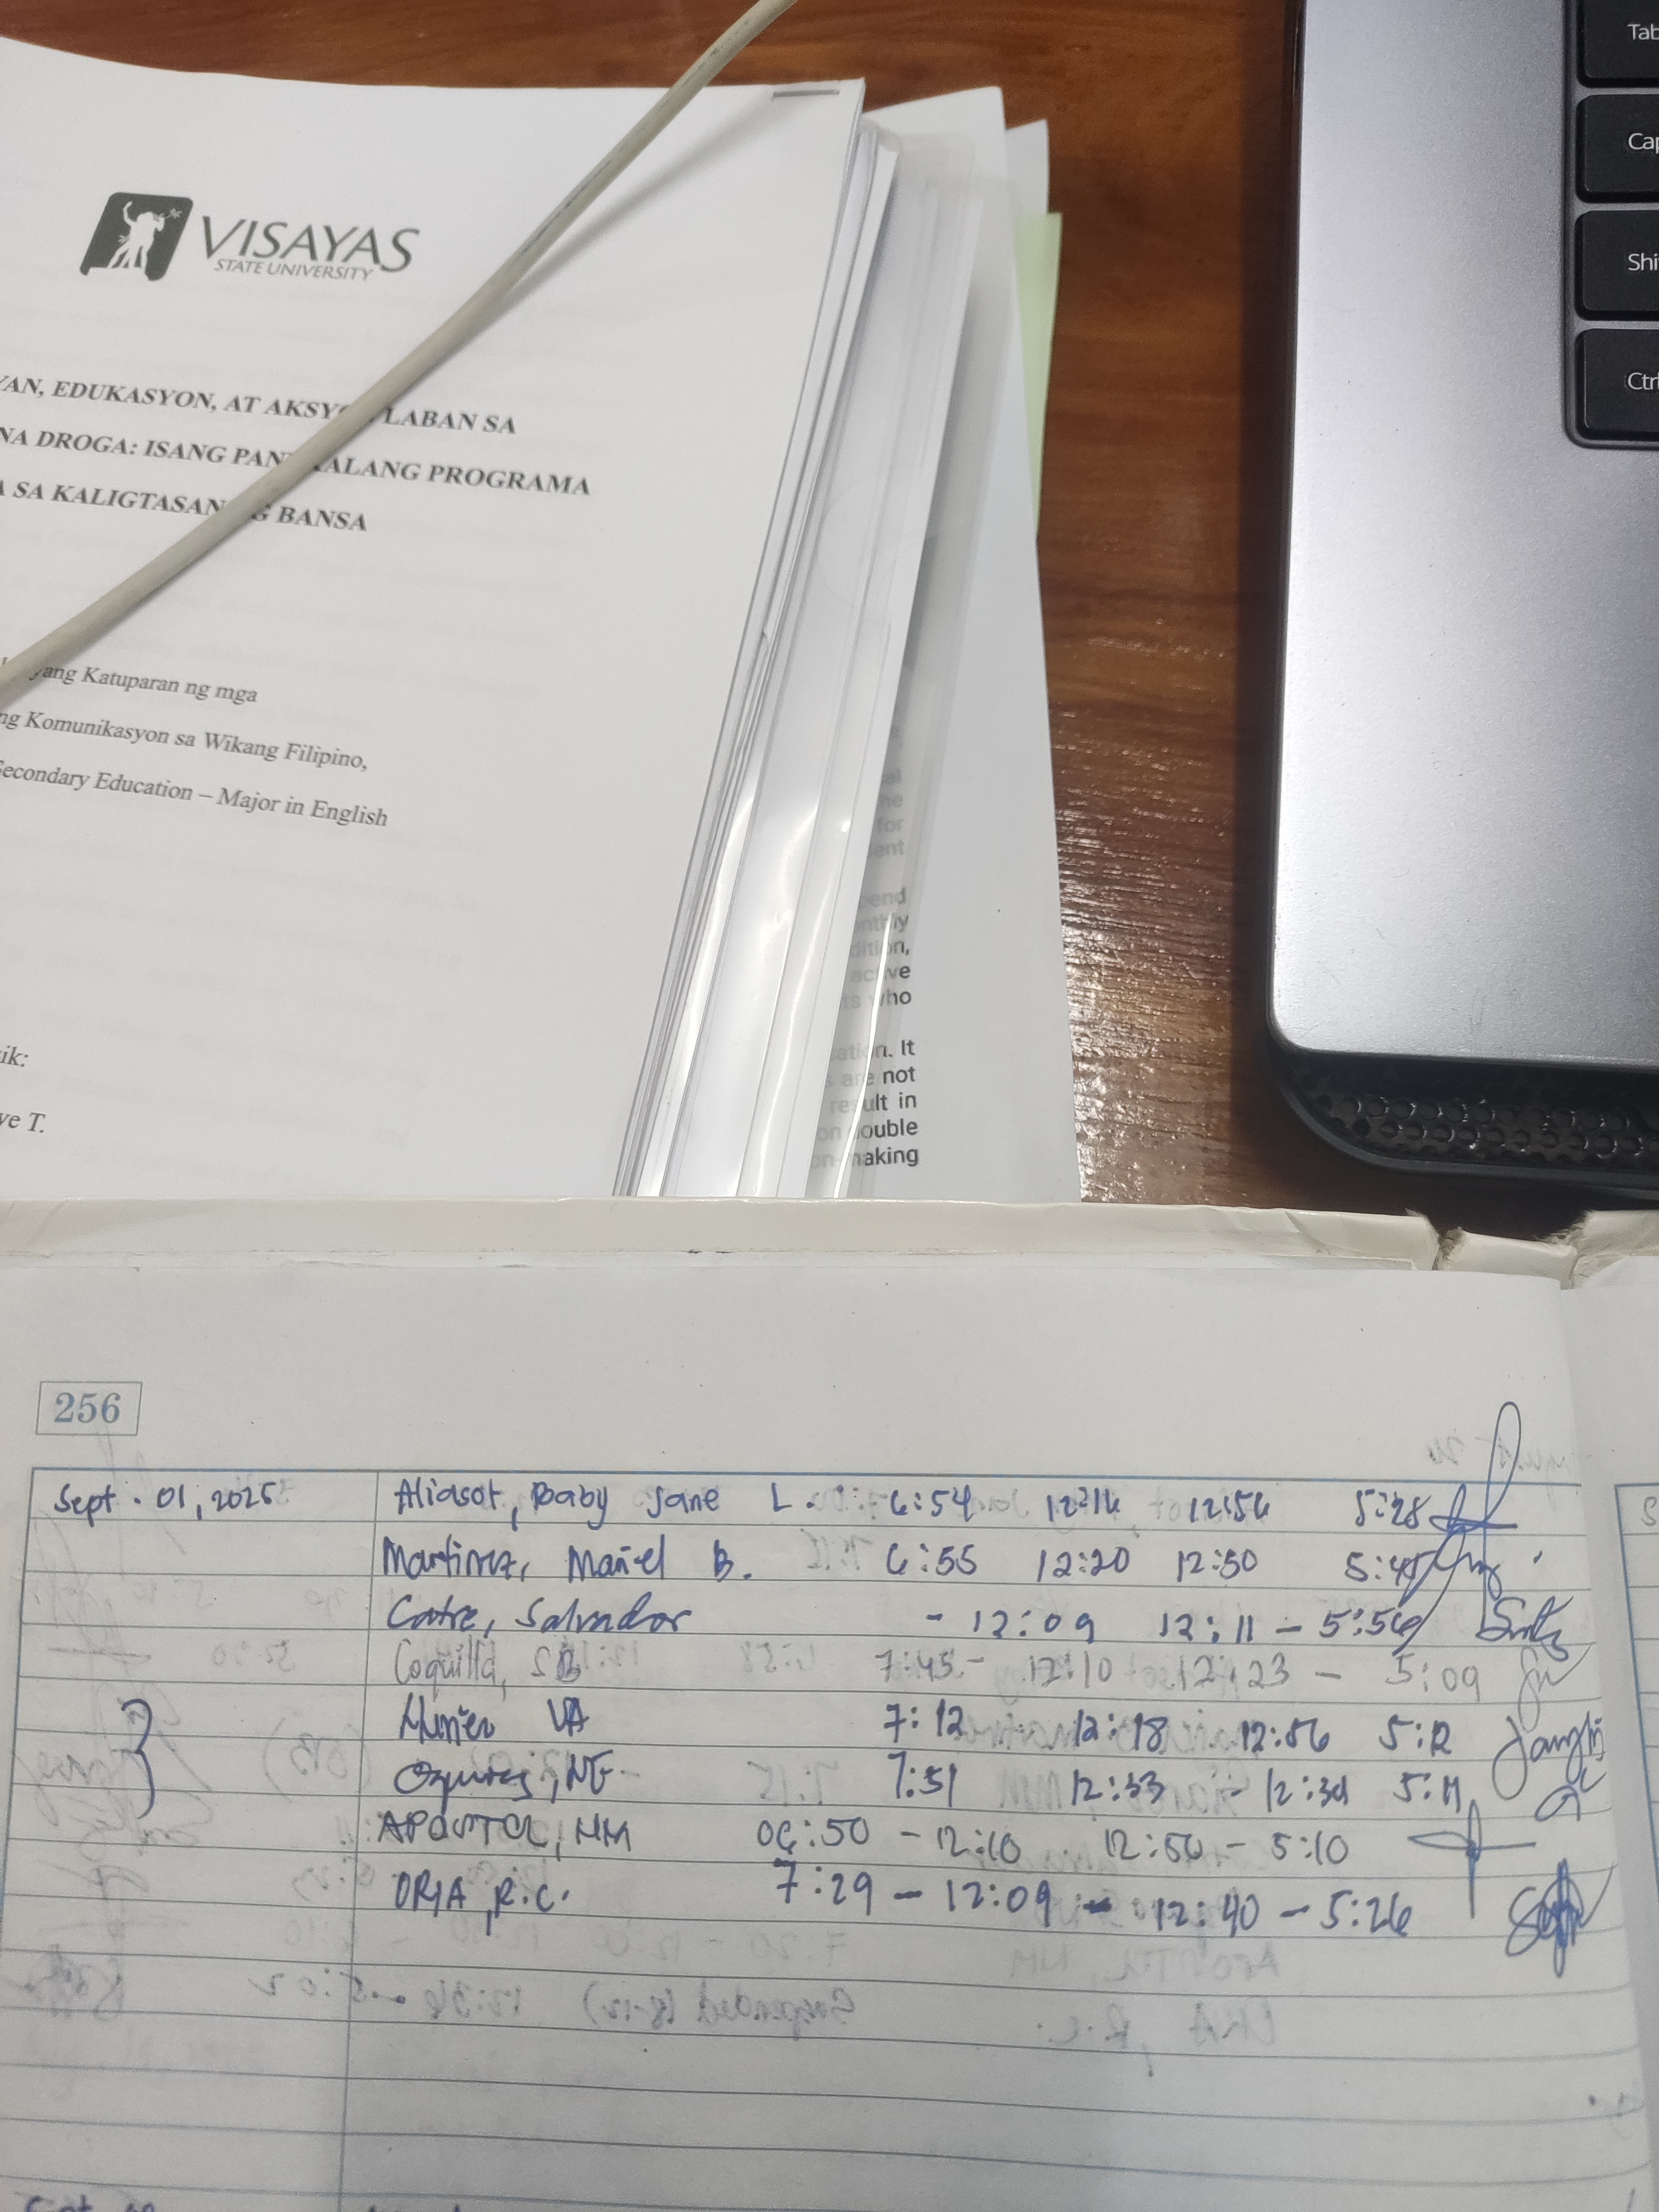 Tab
Cap
Shi
Ctrl
VISAYAS
STATE UNIVERSITY
YAN, EDUKASYON, AT AKSYO LABAN SA
NA DROGA: ISANG PAN ALANG PROGRAMA
A SA KALIGTASAN G BANSA
yang Katuparan ng mga
ng Komunikasyon sa Wikang Filipino,
Secondary Education – Major in English
ik:
ve T.
for
ent
pend
nthly
dition,
active
is who
sation. It
s are not
result in
on double
on-making
256
Sept. 01, 2025 Aliasot, Baby Jane L. 6:54 12:16 12:56 5:28
Martinez, Mariel B. 6:55 12:20 12:50 5:45
Catre, Salvador - 12:09 12:11 - 5:56
Coquilla, SB 7:45 - 12:10 12:23 - 5:09
VA 7:12 12:18 12:56 5:12
7:51 12:33 - 12:39 5:11
APOSTOL, NM 06:50 - 12:10 12:50 - 5:10
ORIA, R.C. 7:29 - 12:09 - 12:40 - 5:26